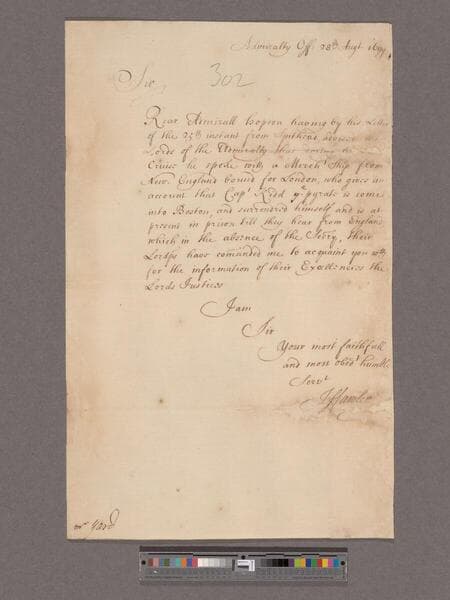 Admiralty Off. 28th Augt 1699
Sir
302
Rear Admirall Hopson having by his Letter
of the 25th instant from Spithead, advised the
Lords of the Admiralty that during the
Cruise he spoke with a Merch.t Ship from
New England bound for London, who gives an
account that Capt. Kidd ye pyrate is come
into Boston, and surrendred himself and is at
present in prison till they hear from England
which in the absence of the Secry, their
Lordps have comanded me to acquaint you with
for the information of their Excellencies the
Lords Justices
I am
Sir
Your most faithfull
and most obedt humble
Servt
mr Yard